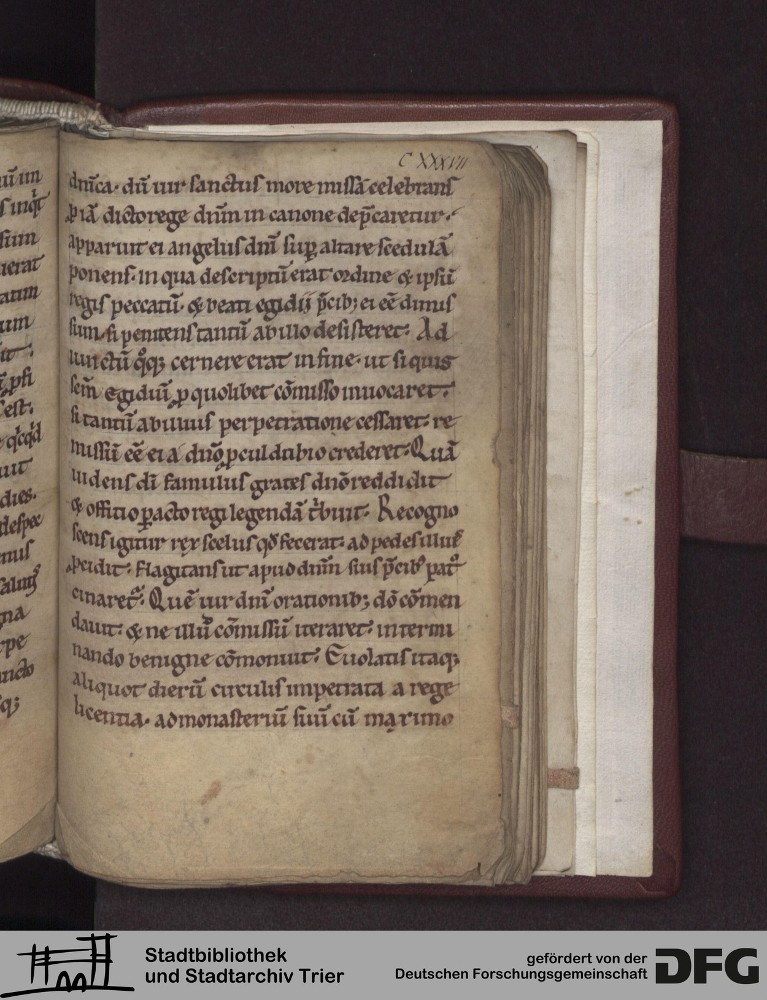 C XXXVII
dnĩca· dũ uir sanctus more missã celebrans
ꝓ iã dicto rege dñm in canone dep̃caretur·
apparuit ei angelus dñi sup̱ altare scedulã
ponens· in qua descriptũ erat ordine & ipsũ
regis peccatũ· & beati egidij p̃cib; ei eẽ dimis
sum· si penitens tantũ ab illo desisteret· Ad
iunctũ q̊q; cernere erat in fine· ut si quis
sc̃m Egidiũ ꝓ quolibet cõmisso inuocaret·
si tantũ ab uiuis perpetratione cessaret· re
missũ eẽ ei a dño ꝓcul dubio crederet· Quã
uidens di famulus grates dño reddidit
& officio p̱acto regi legendã t̃buit· Recogno
scens igitur rex scelus qđ fecerat· ad pedes illiuſ
ꝓcidit· Flagitans ut apud dñm suis p̃cib; pat̊
cinaret̃· Quẽ uir dñi orationib; dõ cõmen
dauit· & ne illũ cõmissũ iteraret· intermi
nando benigne cõmonuit· Euolatis itaq;
aliquot dierũ circulis impetrata a rege
licentia· ad monasteriũ suũ cũ maximo
uũ im
s inq̇t
sum
ierat
atim
um
est·
dies·
despec
mus
gna
q;
Stadtbibliothek
und Stadtarchiv Trier
gefördert von der
Deutschen Forschungsgemeinschaft
DFG